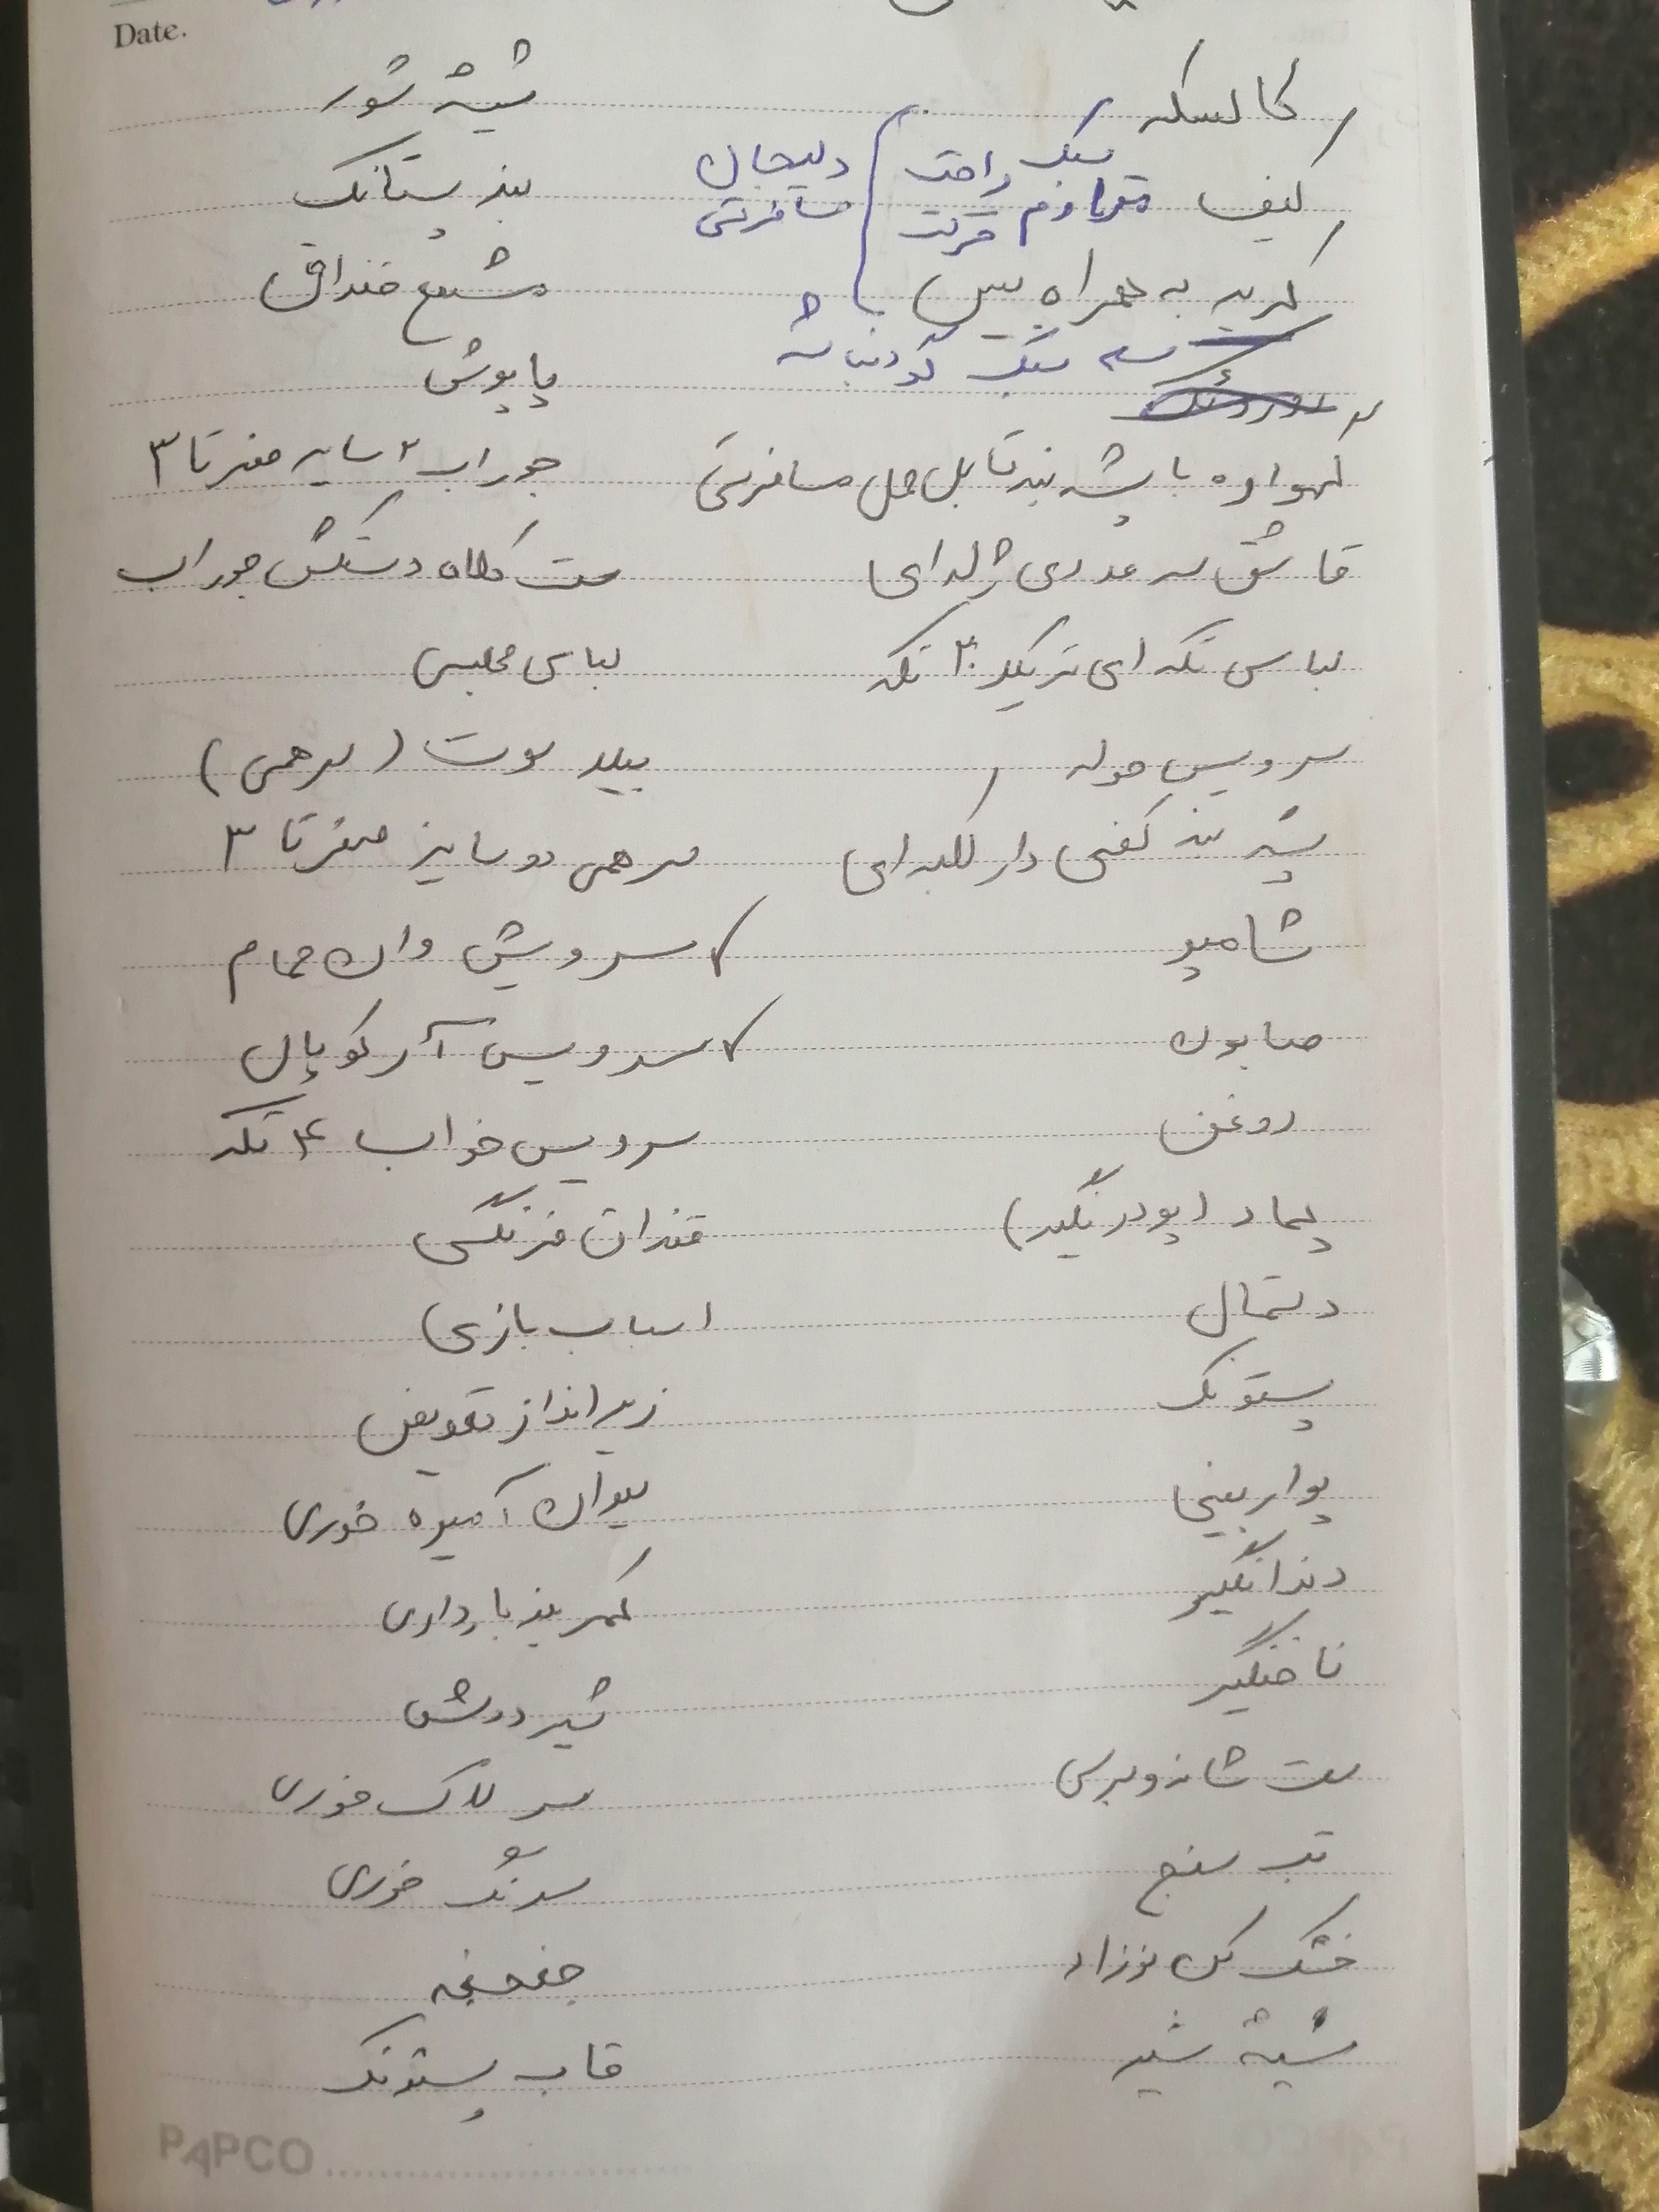 Date.
کالسکه
کیف
سبک راحت
مقاوم
دلیجان
مسافرتی
کریر به همراه بیس
سبک
گهواره با پشه بند قابل حمل مسافرتی
قاشق سه عددی ژله‌ای
لباس تکه ای تریکو ۳۰ تکه
سرویس حوله
پیش بند کفی دار لکه ای
شامپو
صابون
روغن
پماد (پودر نگیر)
دستمال
پستونک
پوار بینی
دندانگیر
ناخنگیر
ست شانه و برس
تب سنج
خشک کن نوزاد
شیشه شیر
شیشه شور
بند پستانک
مشمع قنداق
پاپوش
جوراب ۲ سایز صفر تا ۳
ست کلاه دستکش جوراب
لباس مجلسی
بیلر سوت (سرهمی)
سرهمی دو سایز صفر تا ۳
سرویس وان حمام
سرویس آرکوپال
سرویس خواب ۴ تکه
قنداق فرنگی
اسباب بازی
زیرانداز تعویض
لیوان آبمیوه خوری
کمربند بارداری
شیردوش
سرلاک خوری
سرنگ خوری
جغجغه
قاب پستونک
PAPCO